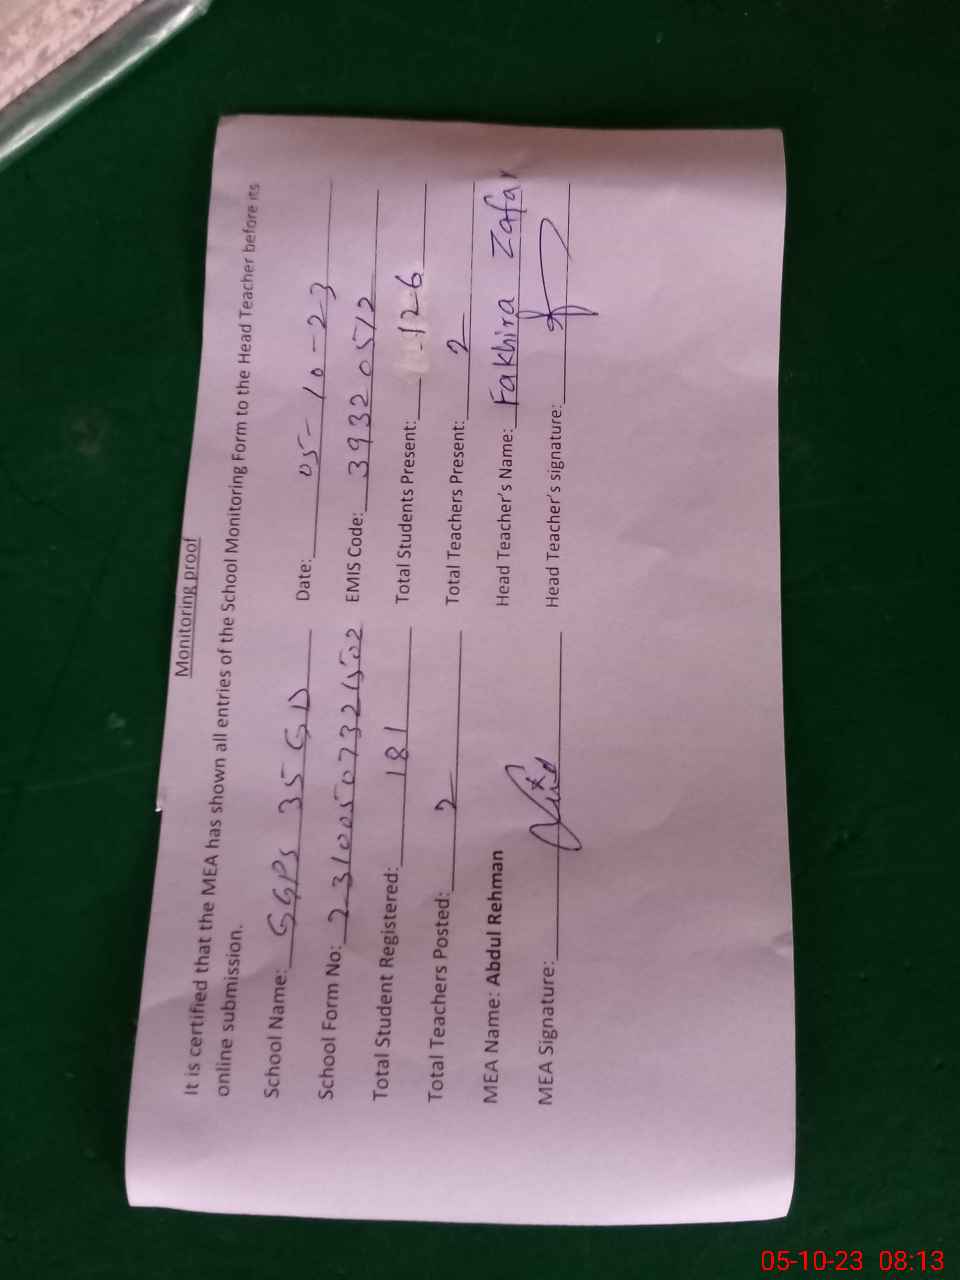 Monitoring proof
It is certified that the MEA has shown all entries of the School Monitoring Form to the Head Teacher before its
online submission.
School Name: GGPS 35 GD Date: 05-10-23
School Form No: 23100507321502 EMIS Code: 39320512
Total Student Registered: 181 Total Students Present: 126
Total Teachers Posted: 2 Total Teachers Present: 2
MEA Name: Abdul Rehman Head Teacher's Name: Fakhira Zafar
MEA Signature: Head Teacher's signature:
05-10-23 08:13